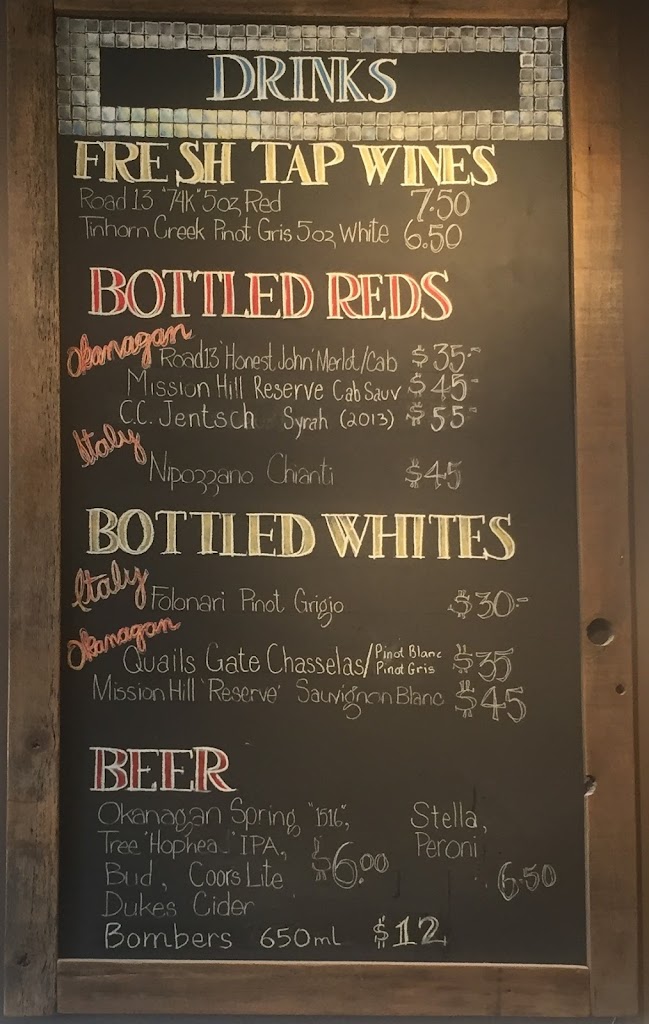 DRINKS
FRESH TAP WINES
Road 13 "74K" 5oz Red 7.50
Tinhorn Creek Pinot Gris 5oz White 6.50
BOTTLED REDS
Okanagan
Road 13 'Honest John' Merlot/Cab $35-
Mission Hill Reserve Cab Sauv $45-
C.C. Jentsch Syrah (2013) $55-
Italy
Nipozzano Chianti $45
BOTTLED WHITES
Italy
Folonari Pinot Grigio $30-
Okanagan
Quails Gate Chasselas/Pinot Blanc Pinot Gris $35
Mission Hill 'Reserve' Sauvignon Blanc $45
BEER
Okanagan Spring "1516",
Tree IPA,
Bud, Coors Lite $6.00
Dukes Cider
Stella,
Peroni
6.50
Bombers 650ml $12